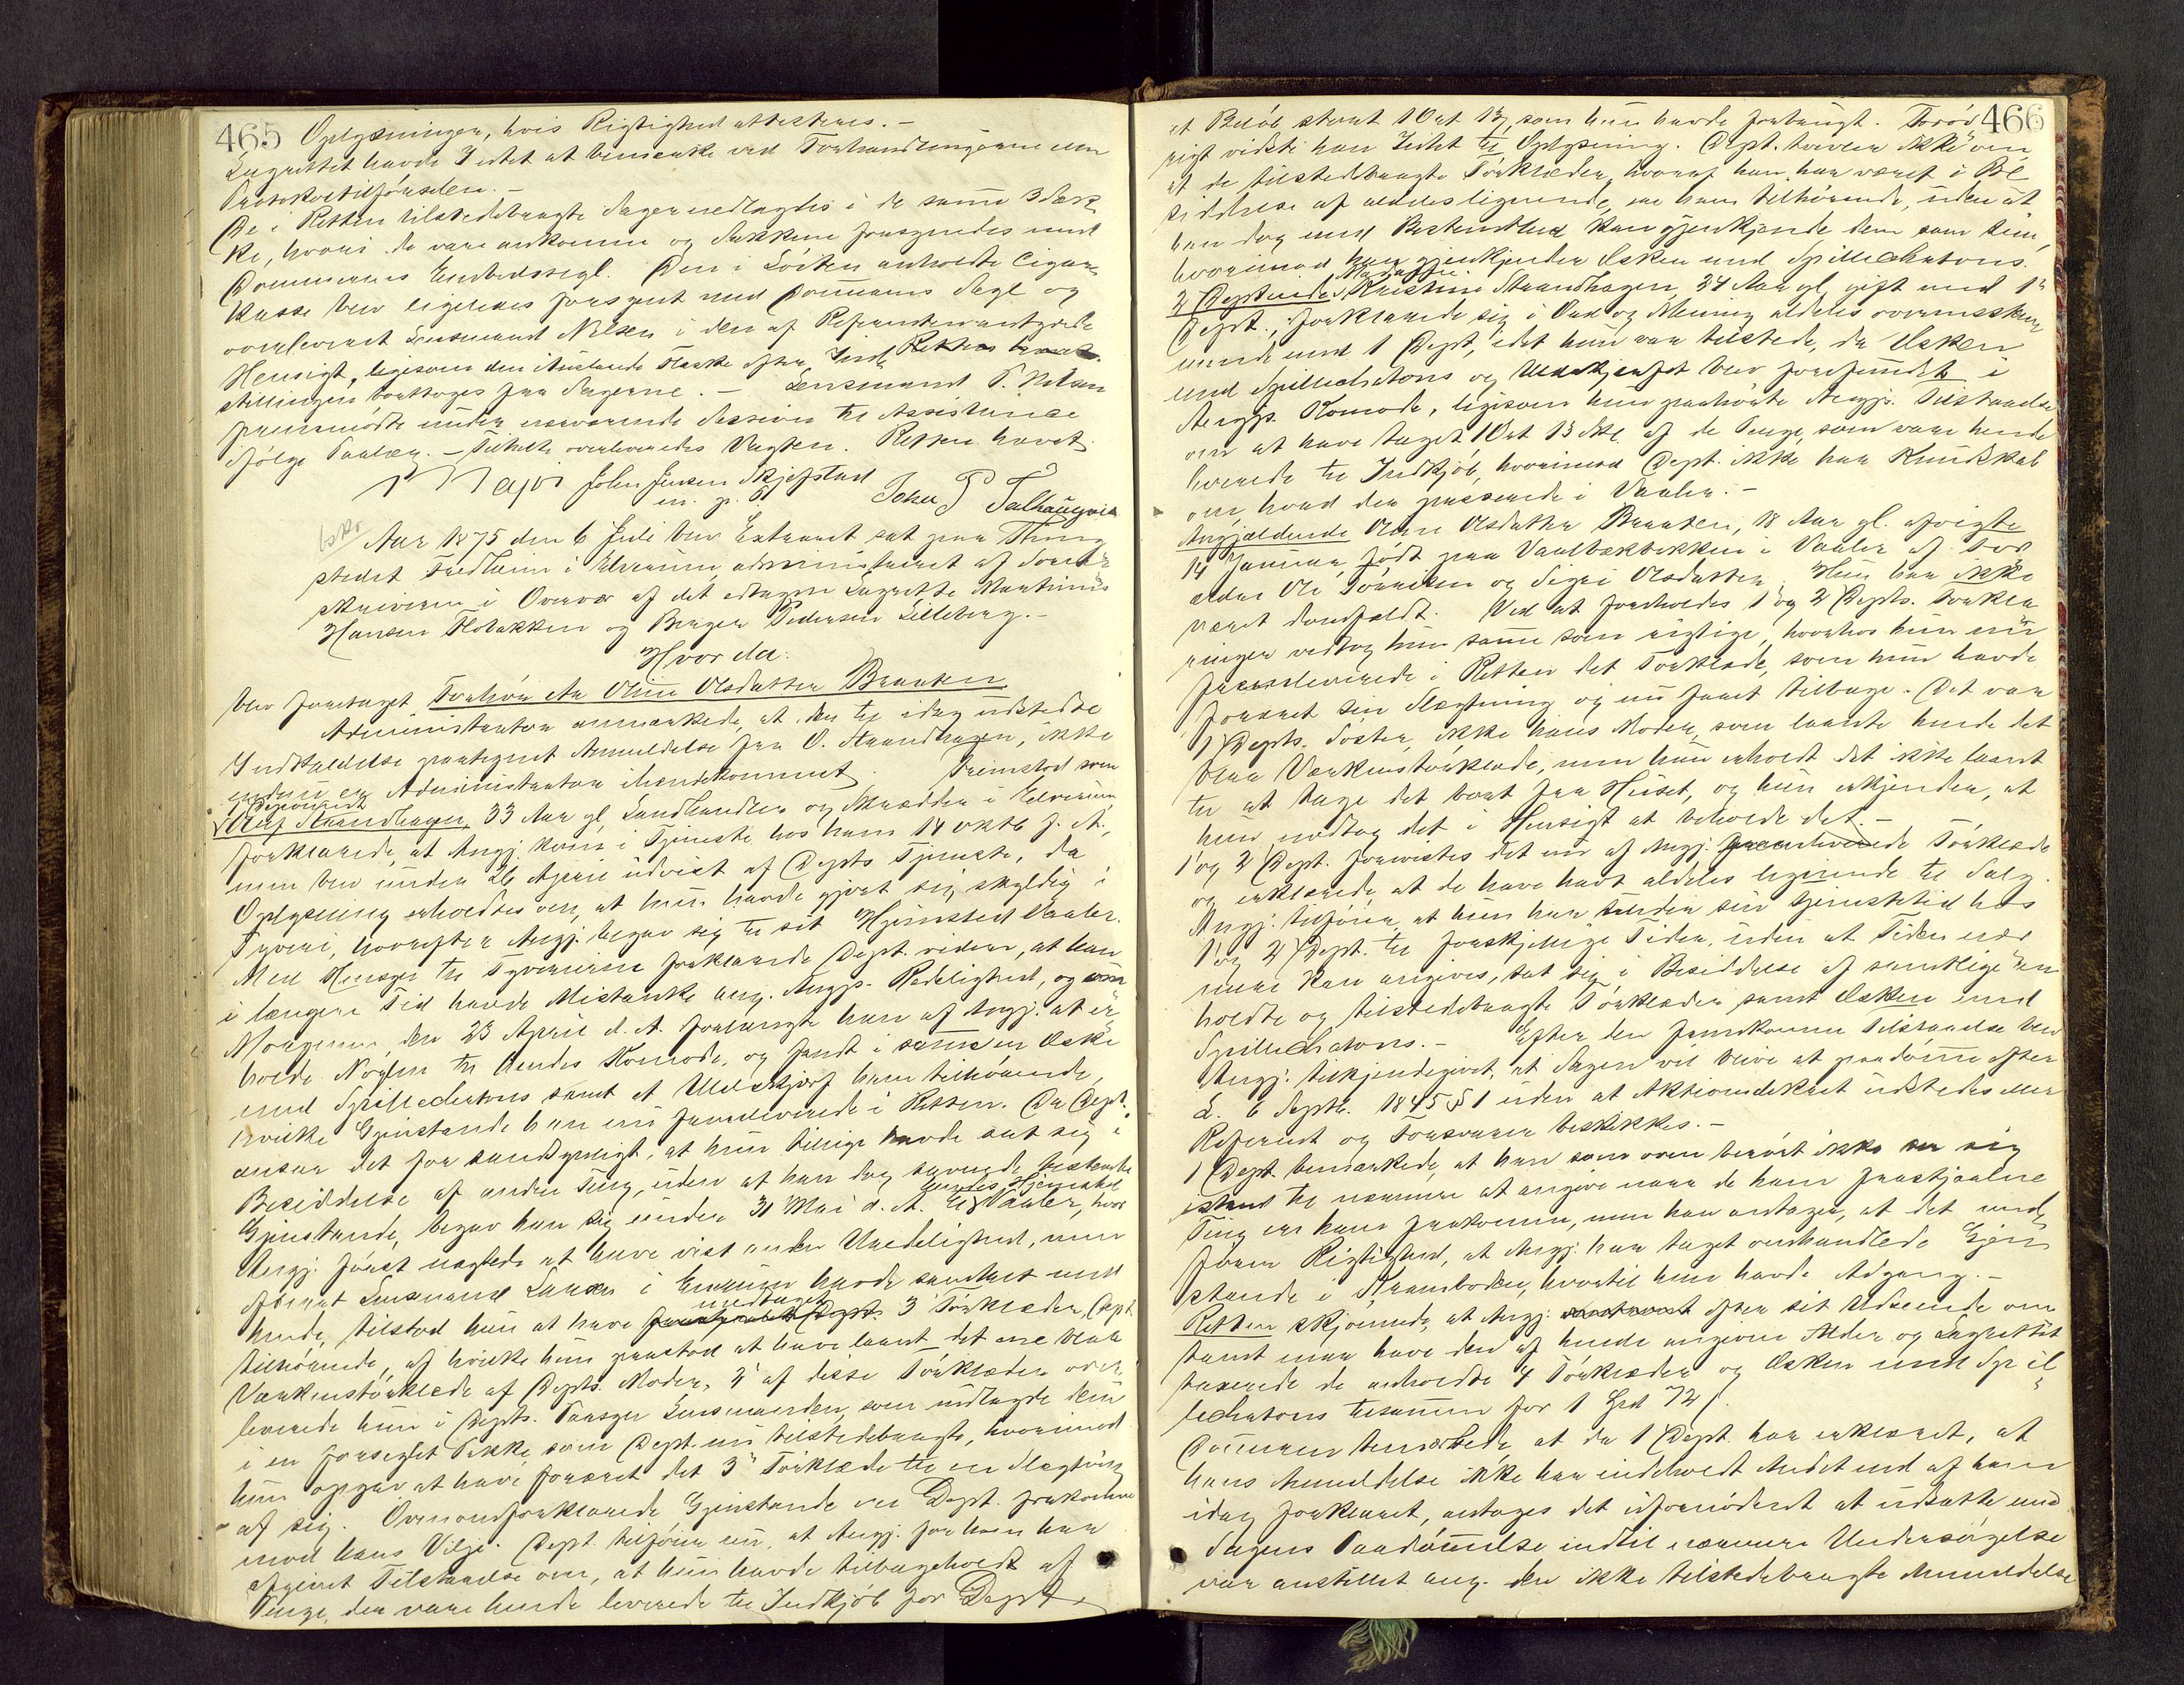 465 Oplysninger, hvis Rigtighed attesteres.-
Lagrettet havde Intet at bemærke ved Forhandlingerne eller
Protokoltilførselen.-
De i Retten tilstedebragte Sager nedlagdes i de samme 3 Sæk
ke, hvori de vare ankomne og Sækkene forsynedes med
Dommerens Embedssegl. Den i Löiten anholdte Cigar
kasse blev ligeledes forsynet med Dommerens Segl og
overleveret Lensmand Nilsen i den af Referenten antydede
Hensigt, ligesom den Flaske efter Inds
stillingen borttoges fra Sagerne.- Lensmand P. Nilsen
fremmødte under nærværende Session til Assistance
ifølge Paalæg.- Tiltalte overleveredes Vagten. Retten hævet.
John Jensen Skjefstad
m. p. P. Johan P Talhaugvi
Aar 1875 den 6 Juli blev Extraret sat paa Thing
stedet Trediem i Elverum, administreret af Soren
skriveren i Overvær af det edtagne Lagrette Martinus
Hansen Flobakken og Berger Pedersen Lilleberg.-
Hvor da:
blev foretaget Forhør ctr Oline Olsdatter Braaten
Administrator anmærkede, at den til idag udstedte
Indkaldelse paategnet Anmeldelse fra O. Strandhagen, ikke
endnu er Administrator ihændekommet. Fremstod som
1 Deponent
Olaf Strandhagen, 33 Aar gl. Landhandler og Skrædder i Elverum
forklarede, at Angj. kom i Tjeneste hos ham 14 Oktb f. A.,
men blev under 26 April udvist af Depts Tjeneste, da
Oplysning erholdtes om, at hun havde gjort sig skyldig i
Tyveri, hvorefter Angj. begav sig til sit Hjemsted Vaaler.
Med Hensyn til Tyverierne forklarede Dept. videre, at han
i længere Tid havde Mistanke ang. Angjs. Redelighed, og om
Morgenen den 23 April d. A. forlangte han af Angj. at er
holde Nøglen til hendes Komode, og fandt i samme en Æske
med Spillechatons samt et Uldskjerf ham tilhørende,
hvilke Gjenstande han nu fremleverede i Retten. Da Dept.
ansaa det for sandsynligt, at hun tillige havde sat sig i
Besiddelse af andre Ting, uden at han dog savnede bestemte
Gjenstande, begav han sig under 31 Mai d. A. til hendes Hjemsted Vaaler, hvor
Angj. først nægtede at have vist anden Uredelighed, men
efterat Lensmand Larsen i havde samtalet med
hende, tilstod hun at have medtaget 3 Tørklæder, Dept.
tilhørende, af hvilke hun paastod at have laant det ene blaa
Værkenstørklæde af Depts. Moder, 2 af disse Tørklæder over
leverede hun i Depts. Paasyn Lensmanden, som nedlagde dem
i en forseglet Pakke, som Dept. nu tilstedebragte, hvorimod
hun opgav at have foræret det 3' Tørklæde til en Slægtning
af sig. Ovenomforklarede Gjenstande ere Dept. frakomne
mod hans Vilje. Dept. tilføier nu, at Angj. for ham har
afgivet Tilstaaelse om, at hun havde tilbageholdt af
Penge, der vare hende leverede til Indkjøb for Dept.,
466
et Beløb stort 1 Ort 13 , som hun havde forbrugt. Forøv
rigt vidste han Intet til Oplysning. Dept. tvivler ikke om
at de tilstedebragte Tørklæder, hvoraf han har været i Be
siddelse af aldeles lignende, ere ham tilhørende, uden at
han dog med Bestemthed kan gjenkjende dem som sine,
hvorimod han gjenkjender Æsken med Spillechatons.
2 Deponent Kristine Strandhagen, 34 Aar gl. gift med 1'
Dept., forklarede sig i Ord og Mening aldeles overensstem
mende med 1 Dept., idet hun var tilstede, da Æsken
med Spillechatons og Uldskjerfet blev forefundet i
Angjs. Komode, ligesom hun paahørte Angjs. Tilstaaelse
om at have taget 1 Ort 13 Skl. af de Penge, som vare hende
leverede til Indkjøb, hvorimod Dept. ikke har Kundskab
om, hvad der passerede i Vaaler.-
Angjældende Oline Olsdatter Braaten, 18 Aar gl. afvigte
14 Januar, født paa Vaalbakbakken i Vaaler af For
ældre Ole Tønnesen og Sigri Olsdatter. Hun har ikke
været domfældt. Ved at foreholdes 1' og 2 Depts. Forkla
ringer vedtog hun samme som rigtige, hvorhos hun nu
fremleverede i Retten det Tørklæde, som hun havde
foræret sin Slægtning og nu faaet tilbage. Det var
1 Depts. Søster, ikke hans Moder, som laante hende det
blaa Værkenstørklæde, men hun erholdt det ikke laant
til at tage det bort fra Huset, og hun erkjender, at
hun medtog det i Hensigt at beholde det.-
1' og 2' Dept. forevistes det nu af Angj. fremleverede Tørklæde
og erklærede, at de have havt aldeles lignende til Salg.
Angj. tilføier, at hun har under sin Tjenestetid hos
1' og 2 Dept. til forskjellige Tider, uden at Tiden nær
mere kan angives, sat sig i Besiddelse af samtlige an
holdte og tilstedebragte Tørklæder samt Æsken med
Spillechatons.- Efter den fremkomne Tilstaaelse blev
Angj. tilkjendegivet, at Sagen vil blive at paadømme efter
L. 6 Septb. 1845 § 1 uden at Aktionsdekret udstedes eller
Referent og Forsvarer beskikkes.-
1 Dept. bemærkede, at han som oven berørt ikke ser sig
istand til nærmere at angive naar de ham frastjaalne
Ting ere ham frakomne, men han antager, at det med
fører Rigtighed, at Angj. har taget omhandlede Gjen
stande i Kramboden, hvortil hun havde Adgang.-
Retten skjønnede, at Angj. efter sit Udseende om
trent maa have den af hende angivne Alder og Lagrettet
taxerede de anholdte 4 Tørklæder og Æsken med Spil
lechatons tilsammen for 1 Spd 72 ſ.
Dommeren bemærkede, at da 1 Dept. har erklæret, at
hans Anmeldelse ikke har indeholdt Andet end af ham
idag forklaret, antages det ufornødent at udsætte med
Sagens Paadømmelse indtil nærmere Undersøgelse
var anstillet ang. den ikke tilstedebragte Anmeldelse